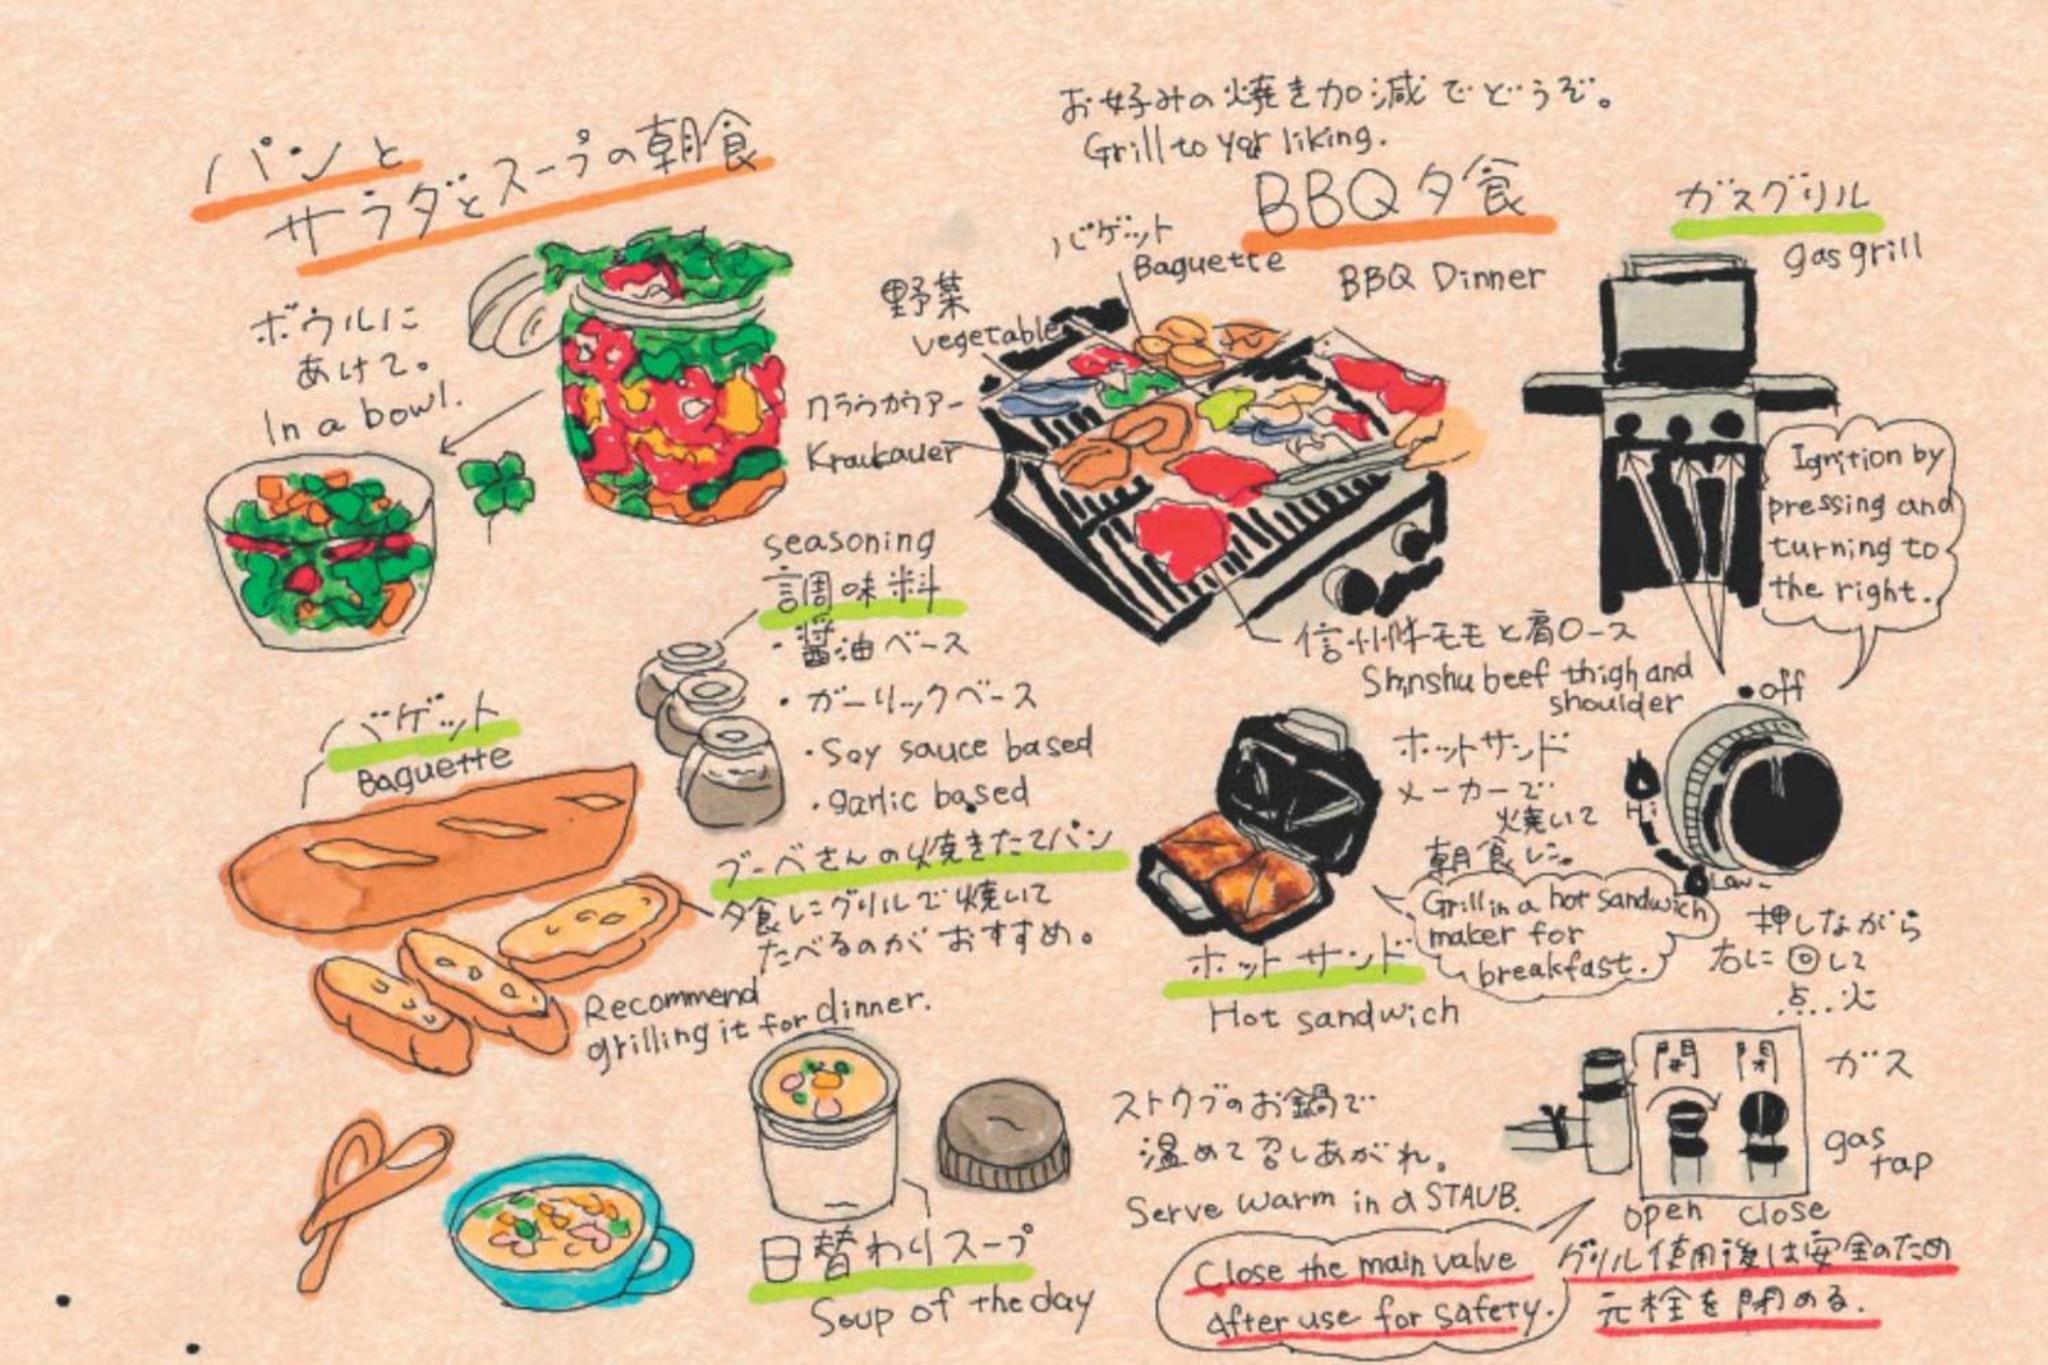 パンと
サラダとスープの朝食
ボウルに
あけて。
In a bowl.
seasoning
調味料
・醤油ベース
・ガーリックベース
・Soy sauce based
・garlic based
バゲット
Baguette
ブーベさんの焼きたてパン
夕食にグリルで焼いて
たべるのがおすすめ。
Recommend
grilling it for dinner.
日替わりスープ
Soup of the day
ストウブのお鍋で
温めて召しあがれ。
Serve warm in a STAUB.
お好みの焼き加減でどうぞ。
Grill to your liking.
BBQ夕食
BBQ Dinner
バゲット
Baguette
野菜
vegetable
クラウカウアー
Kraukauer
信州牛モモと肩ロース
Shinshu beef thigh and
shoulder
ガスグリル
gas grill
Ignition by
pressing and
turning to
the right.
off
Hi
Low
押しながら
右に回して
点火
ホットサンド
メーカーで
焼いて
朝食に。
Grill in a hot sandwich
maker for
breakfast.
ホットサンド
Hot sandwich
開 閉
ガス
gas
tap
open close
Close the main valve
After use for safety.
グリル使用後は安全のため
元栓を閉める。